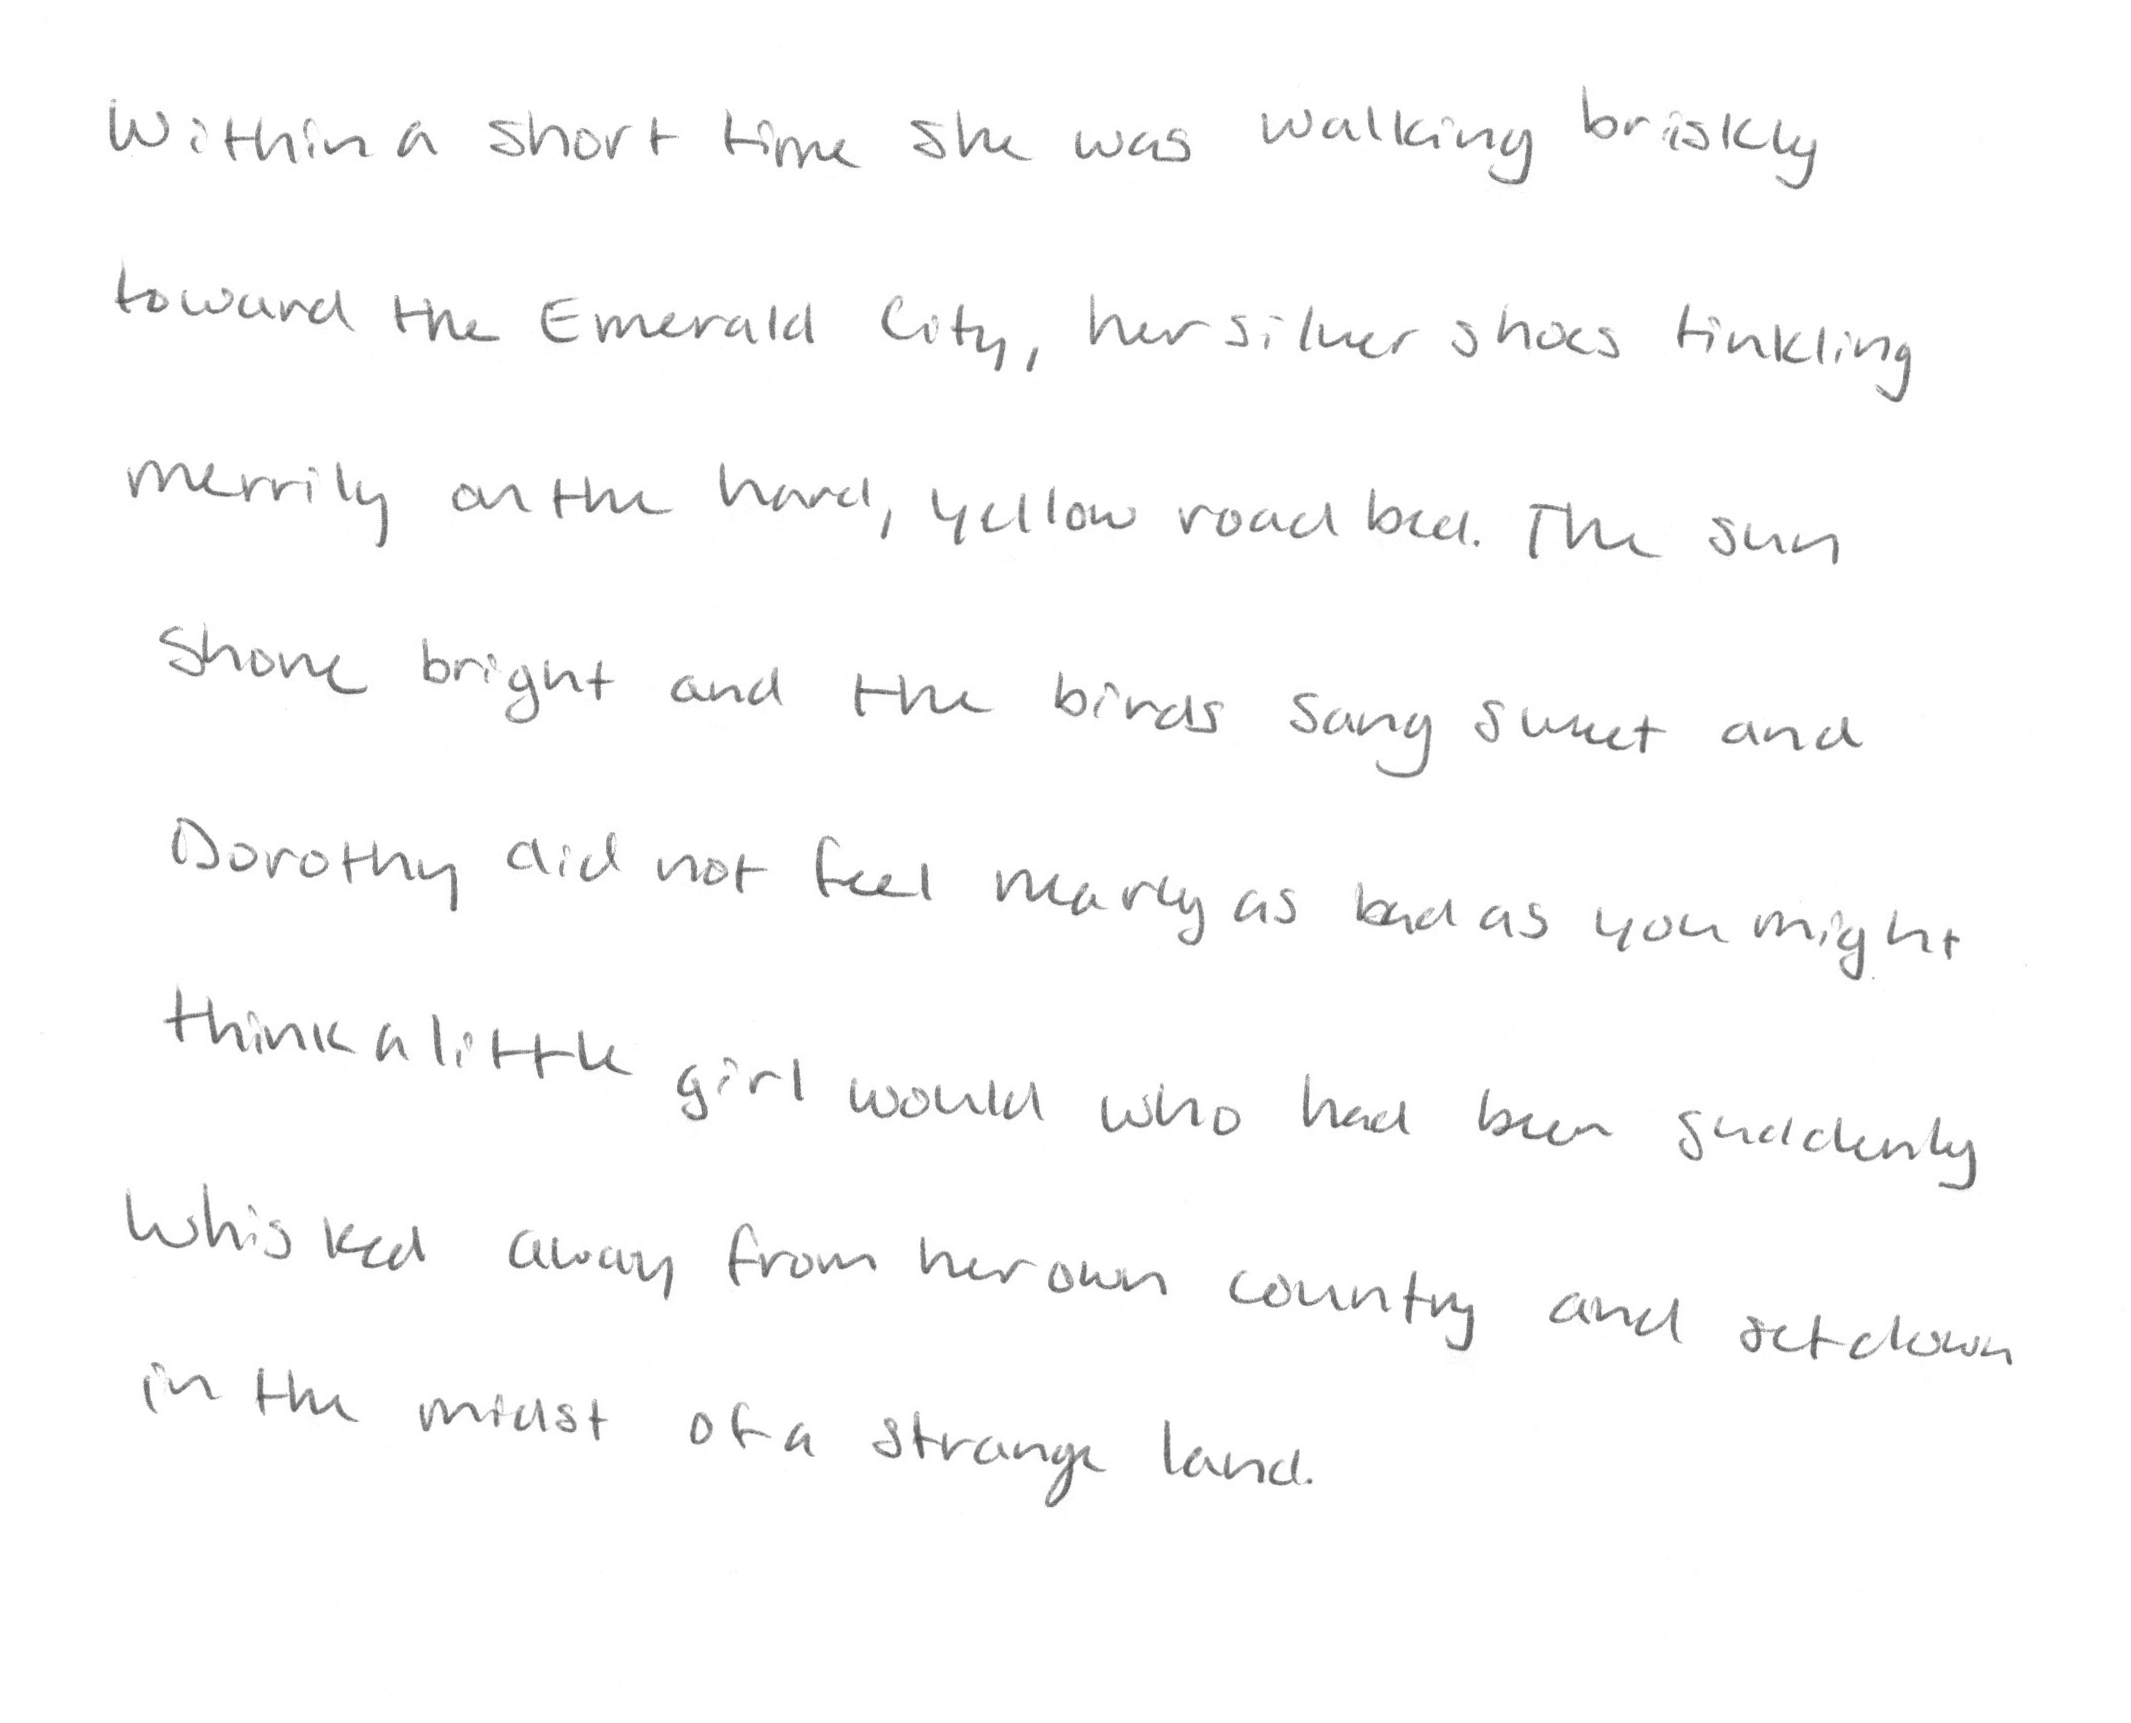 Within a short time she was walking briskly
toward the Emerald City, her silver shoes tinkling
merrily on the hard, yellow road bed. The sun
shone bright and the birds sang sweet and
Dorothy did not feel nearly as bad as you might
think a little girl would who had been suddenly
whisked away from her own country and set down
in the midst of a strange land.